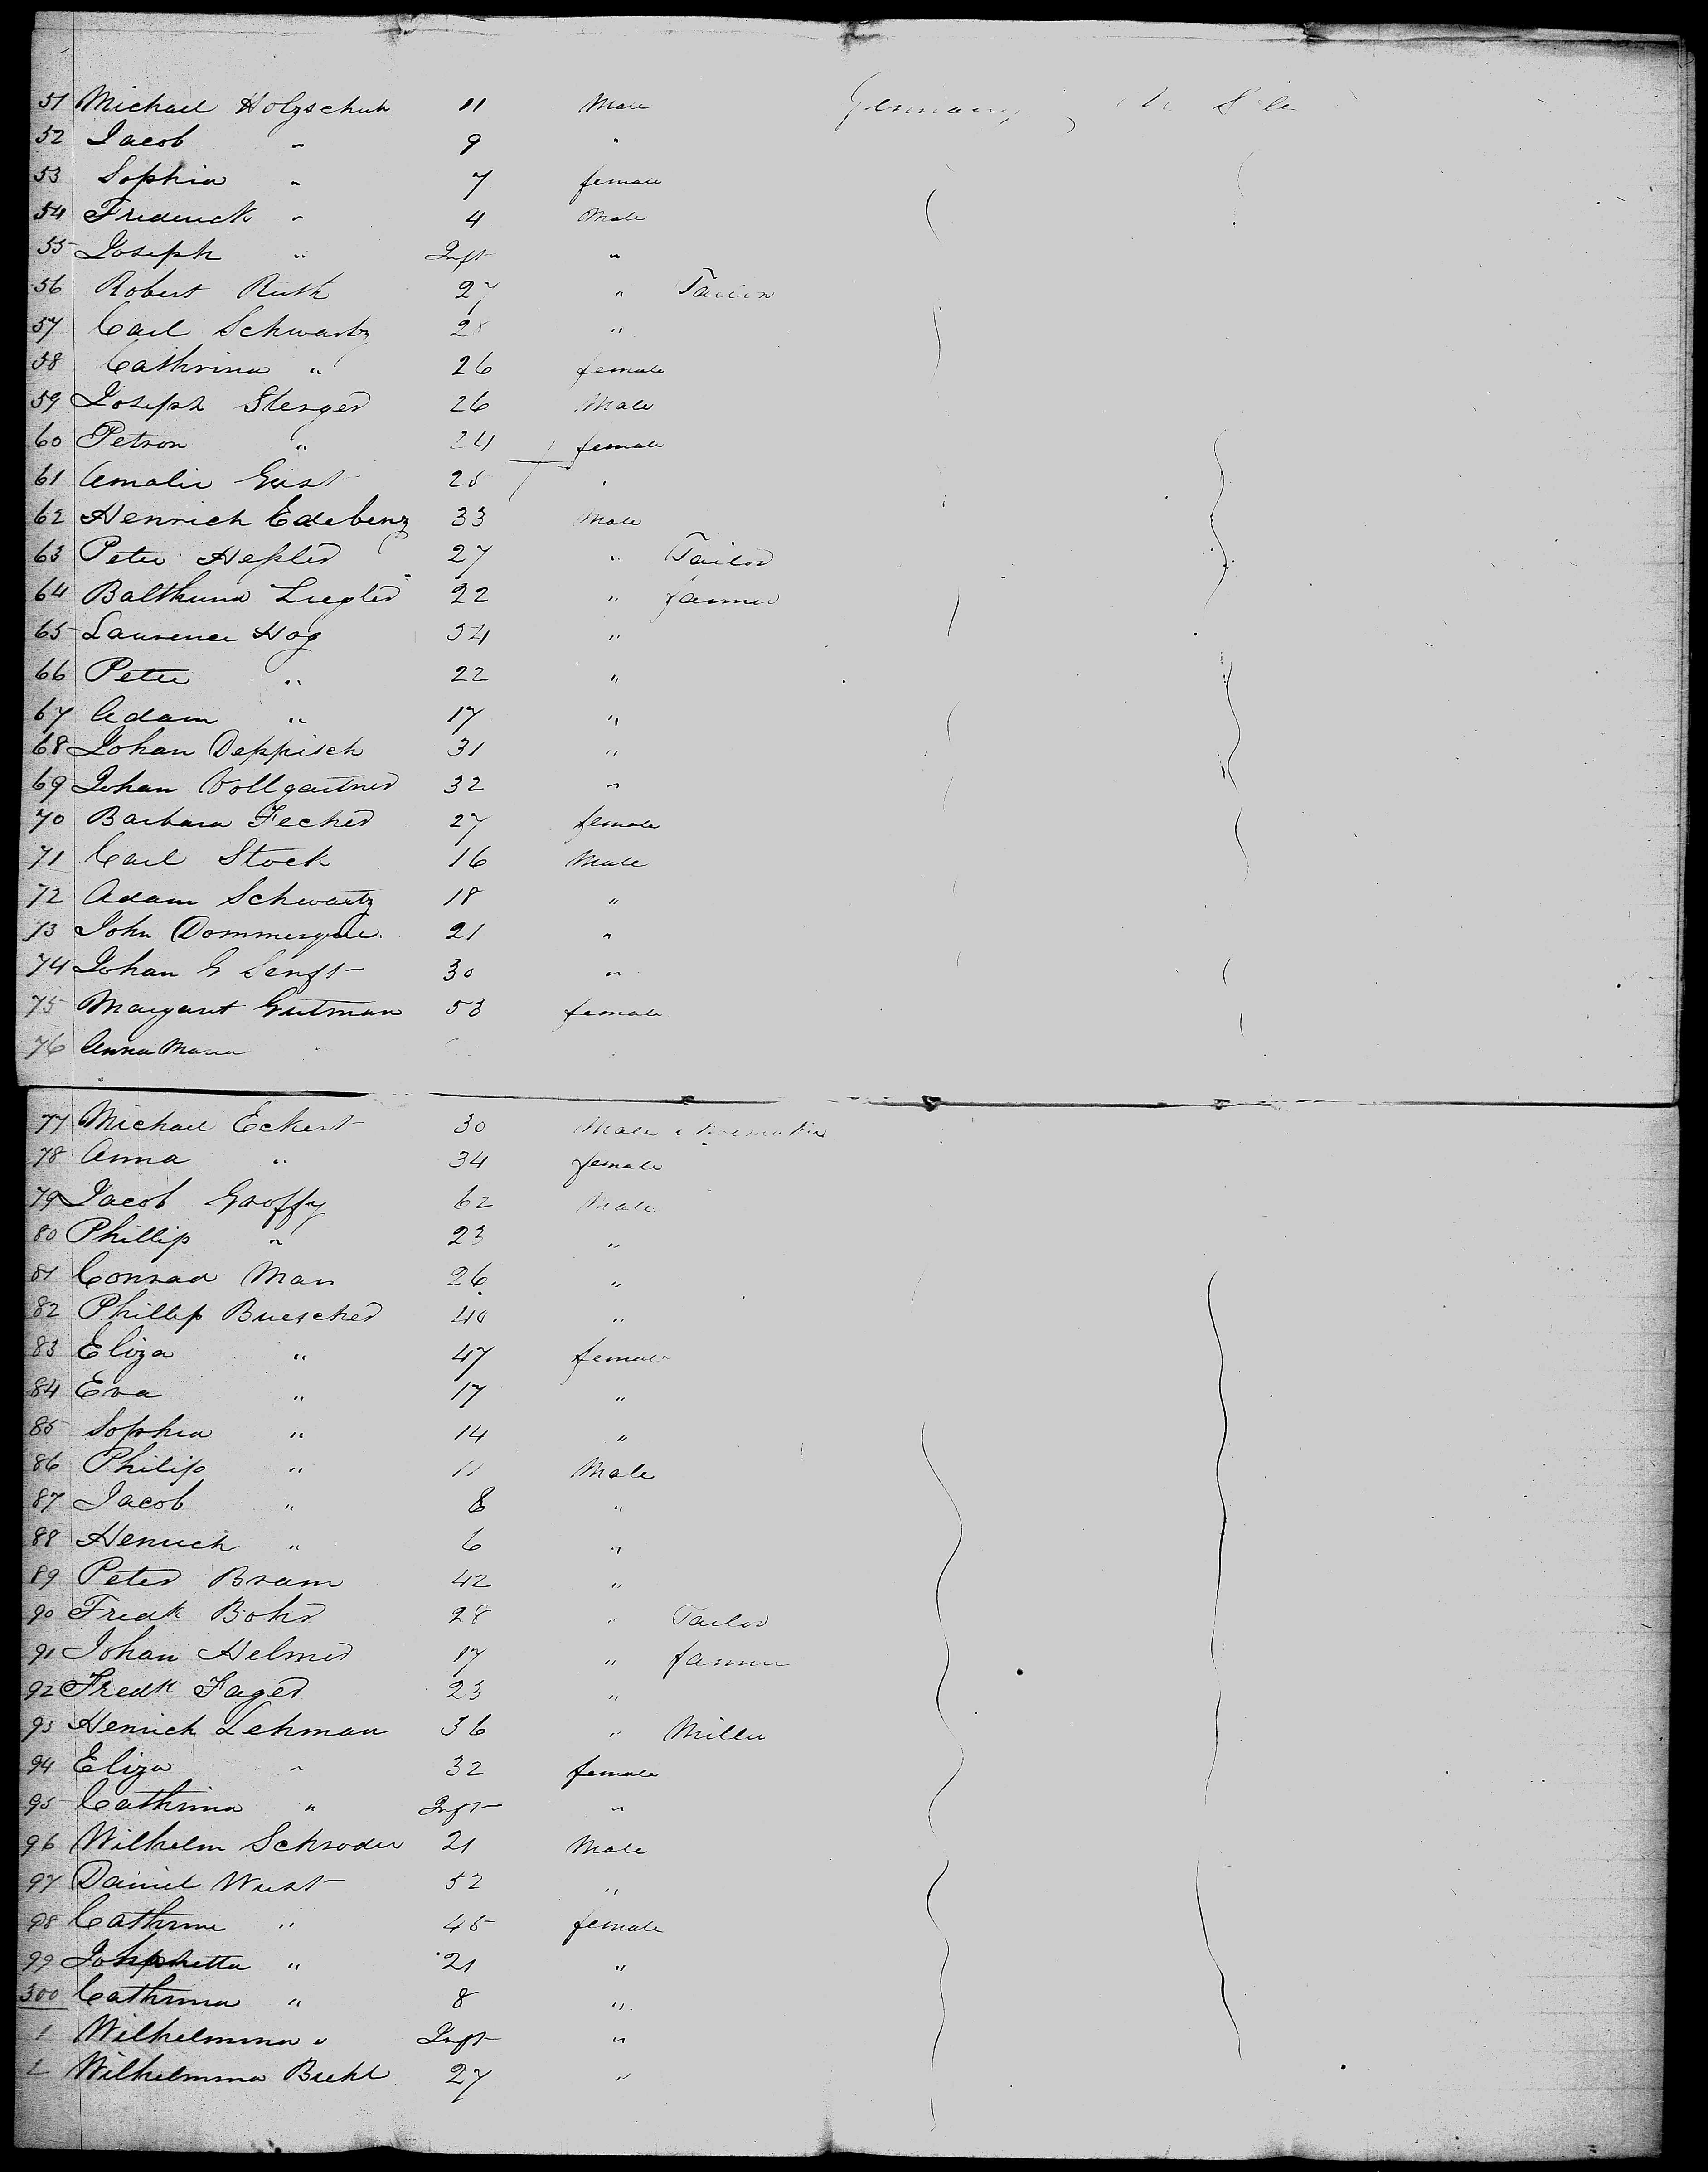 51 Michael Holzschuh 11 Male Germany
52 Jacob " 9 "
53 Sophia " 7 female
54 Frederick " 4 Male
55 Joseph " Inft "
56 Robert Ruth 27 " Tailor
57 Carl Schwartz 28 "
58 Cathrina " 26 female
59 Joseph Stenger 26 Male
60 Petron " 24 female
61 Amalie Geist 25 "
62 Henrich Edebenz 33 Male
63 Peter Hepler 27 " Tailor
64 Balthund Ziegler 22 " farmer
65 Laurence Hog 54 "
66 Peter " 22 "
67 Adam " 17 "
68 Johan Deppisch 31 "
69 Johan Vollgartner 32 "
70 Barbara Fecher 27 female
71 Carl Stock 16 Male
72 Adam Schwartz 18 "
73 John Dommergue 21 "
74 Johan G Senft 30 "
75 Margaret Gutman 53 female
76 Anna Maria
77 Michael Eckert 30 Male Shoemaker
78 Anna " 34 female
79 Jacob Groffy 62 Male
80 Phillip " 23 "
81 Conrad Man 26 "
82 Phillip Buescher 40 "
83 Eliza " 47 female
84 Eva " 17 "
85 Sophia " 14 "
86 Philip " 11 Male
87 Jacob " 8 "
88 Henrich " 6 "
89 Peter Bram 42 "
90 Fredk Bohr 28 " Tailor
91 Johan Helmer 17 " farmer
92 Fredk Fager 23 "
93 Henrich Lehman 36 " Miller
94 Eliza " 32 female
95 Cathrina " Inft "
96 Wilhelm Schroder 21 Male
97 Daniel Wust 52 "
98 Cathrine " 45 female
99 " 21 "
300 Cathrina " 8 "
1 Wilhelmina " Inft "
2 Wilhelmina Biehl 27 "